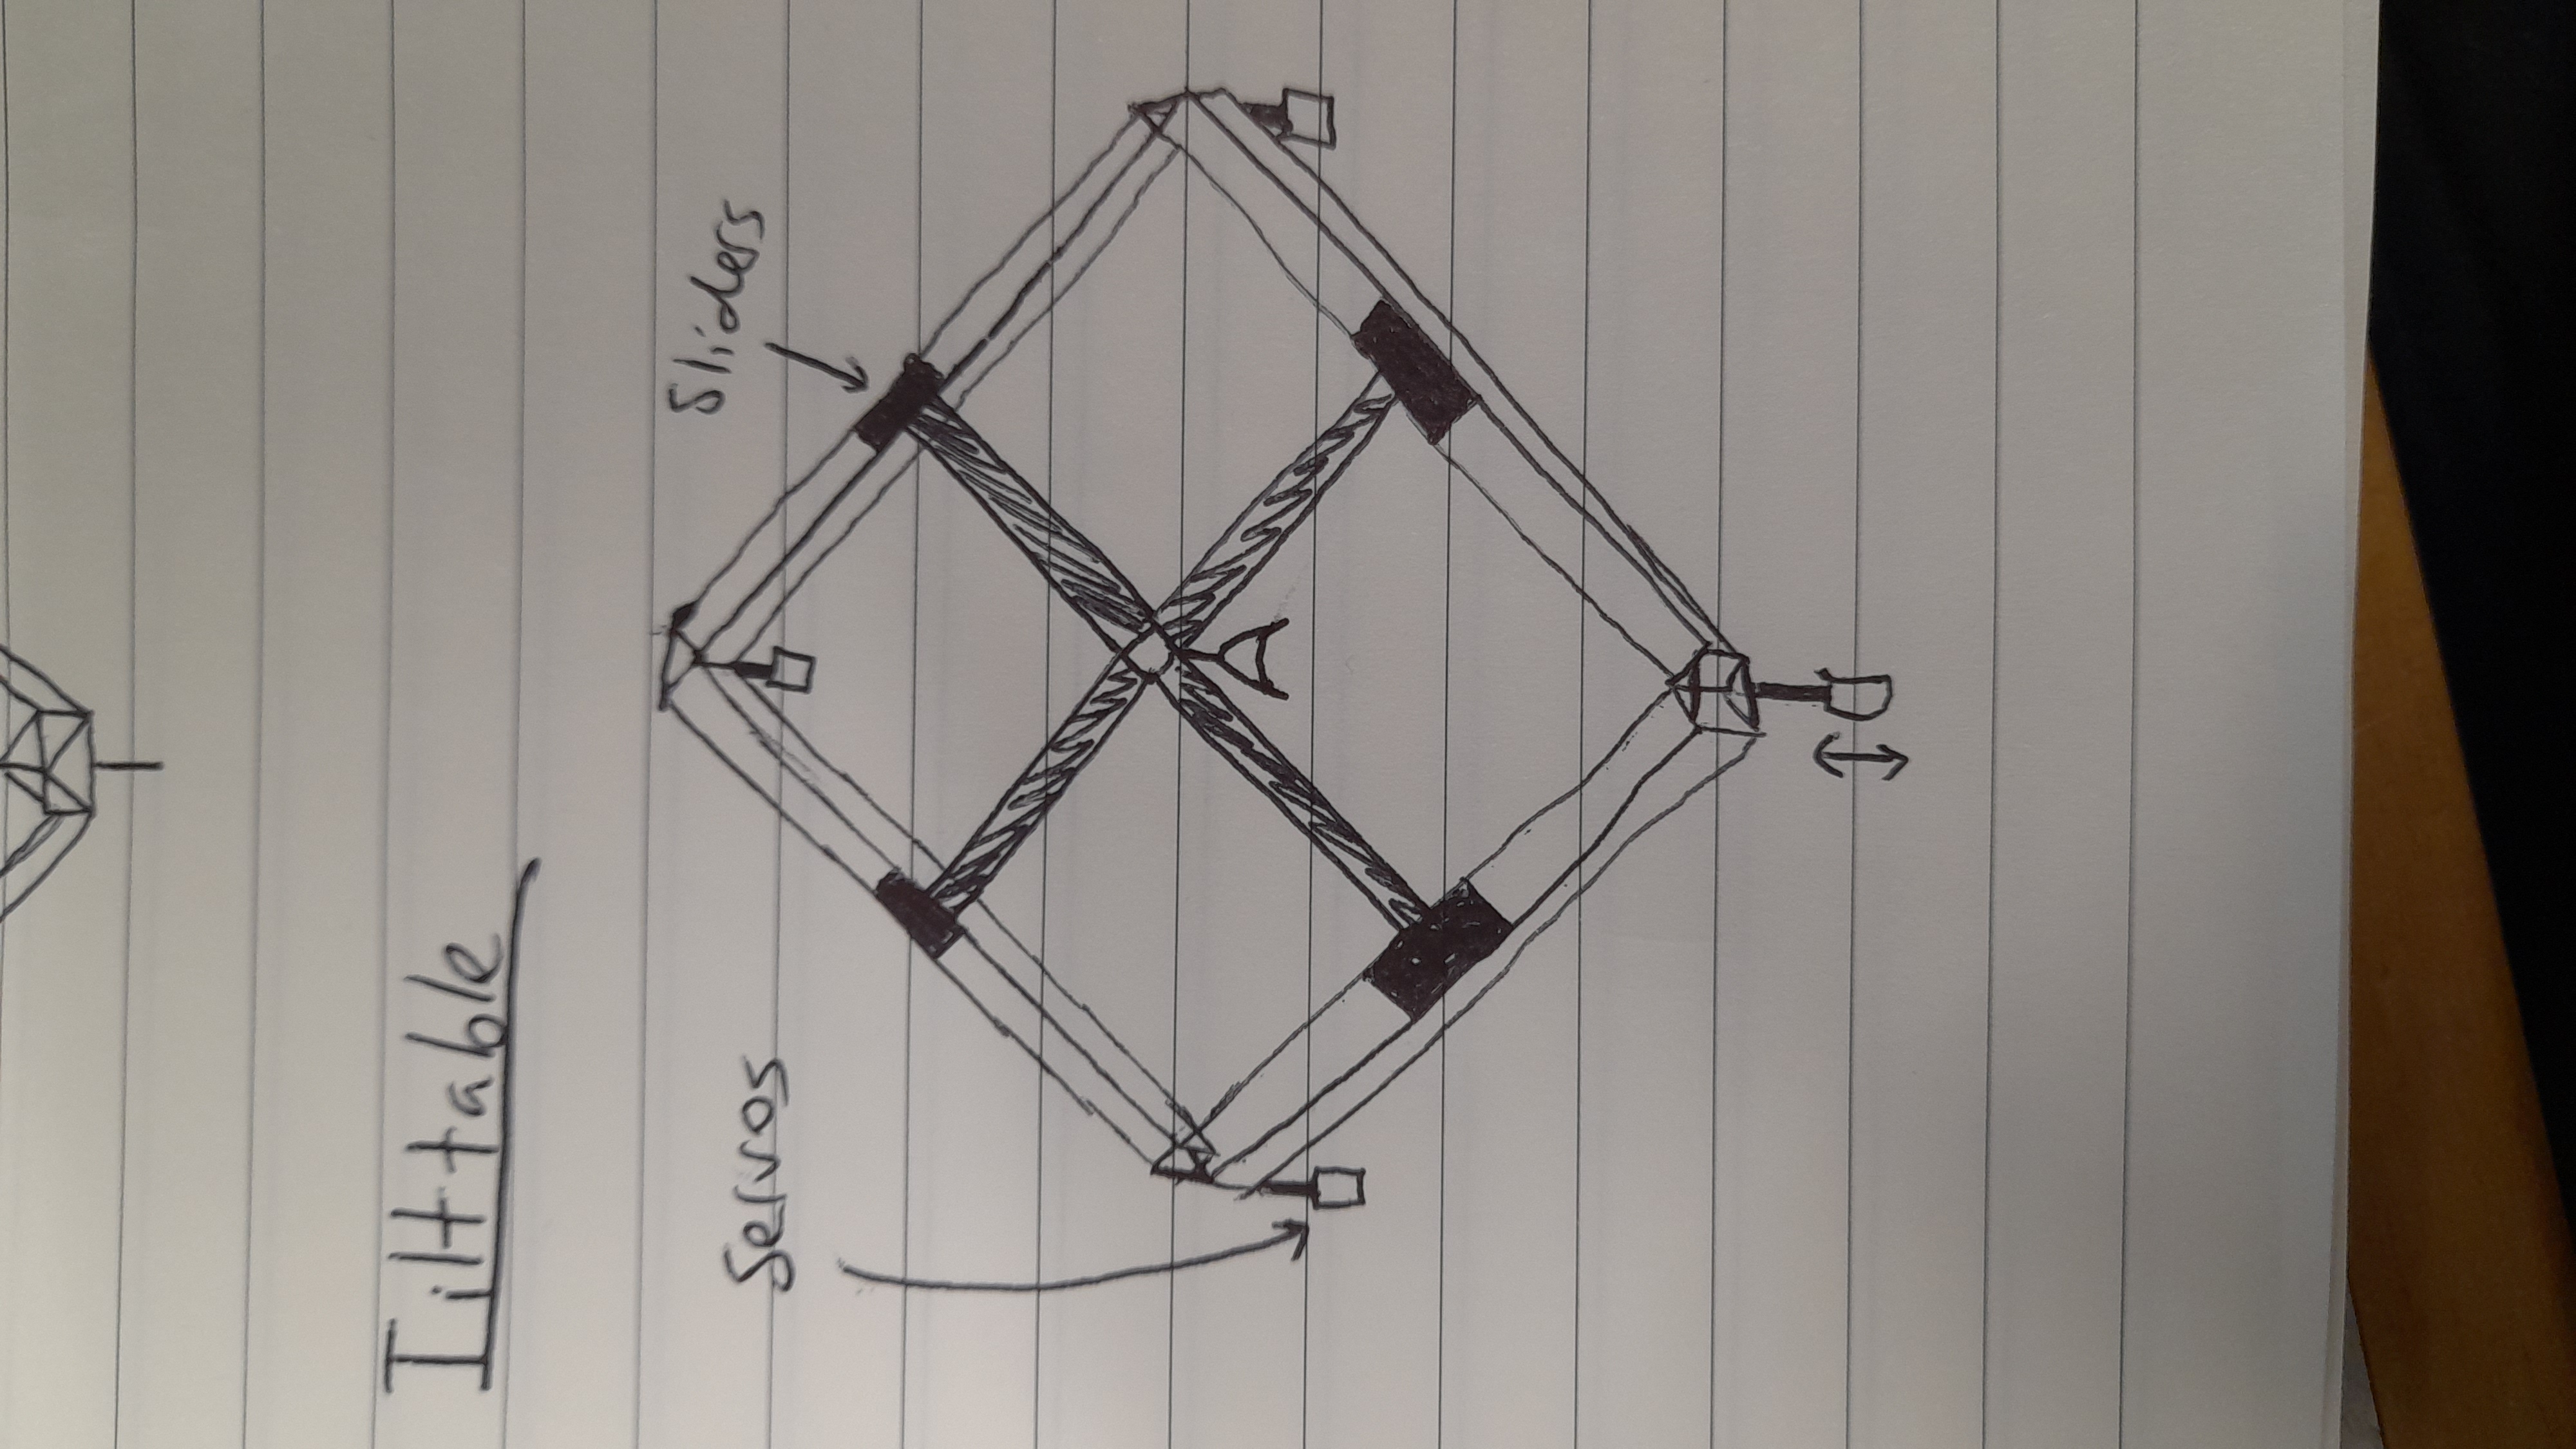 Tilttable
Servos
Sliders